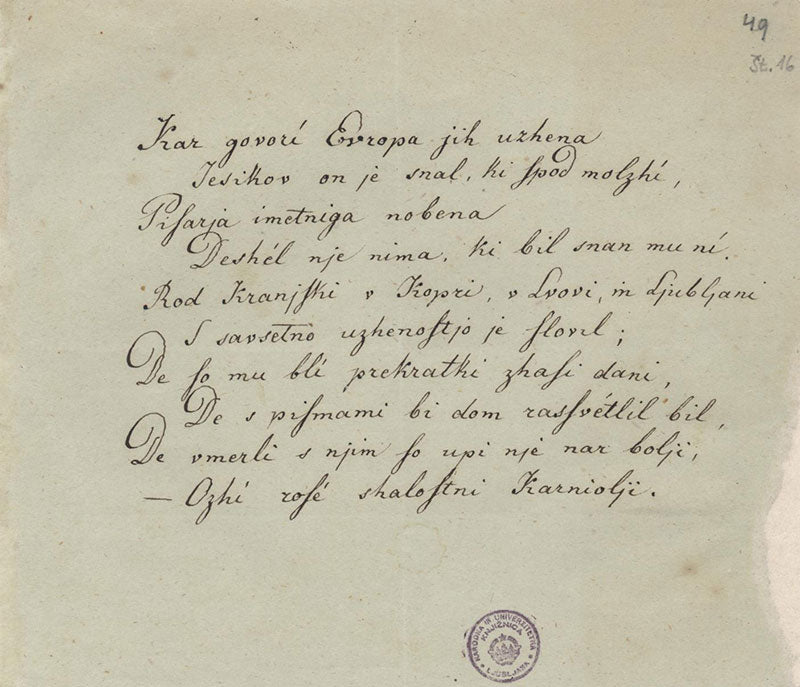 49
Št. 16
Kar govorí Evropa jih uzhena
Jesikov on je snal, ki ſpod molzhí,
Piſarja imetniga nobena
Deshél nje nima, ki bil snan mu ní.
Rod Kranjſki v Kopri, v Lvovi, in Ljubljani
S savsetno uzhenoſtjo je ſlovil;
De ſo mu blí prekratki zhaſi dani,
De s piſmami bi dom rasſvétlil bil,
De vmerli s njim ſo upi nje nar bolji,
— Ozhí roſé shaloſtni Karniolji.
NARODNA IN UNIVERZITETNA
KNJIŽNICA
LJUBLJANA